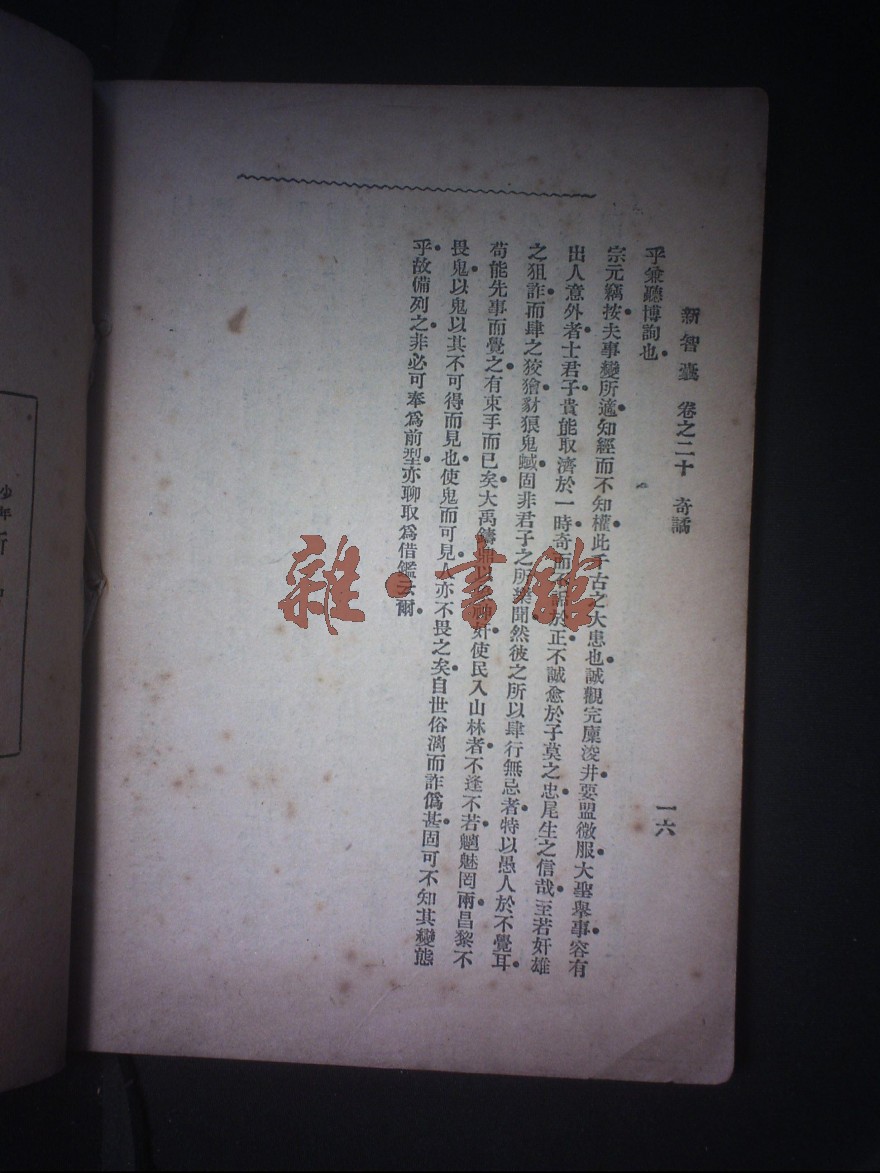 新智囊 卷之二十 奇譎
一六
乎兼聽博詢也
宗元竊按夫事變所適知經而不知權此千古之大患也誠觀完廩浚井要盟微服大聖舉事容有
出人意外者士君子貴能取濟於一時奇而不詭於正不誠愈於子莫之忠尾生之信哉至若奸雄
之狙詐而肆之狡獪豺狼鬼蜮固非君子之所樂聞然彼之所以肆行無忌者特以愚人於不覺耳
苟能先事而覺之有束手而已矣大禹鑄 以 奸使民入山林者不逢不若魑魅罔兩昌黎不
畏鬼以鬼以其不可得而見也使鬼而可見人亦不畏之矣自世俗漓而詐偽甚固可不知其變態
乎故備列之非必可奉爲前型亦聊取爲借鑑云爾
雜·書館
少年